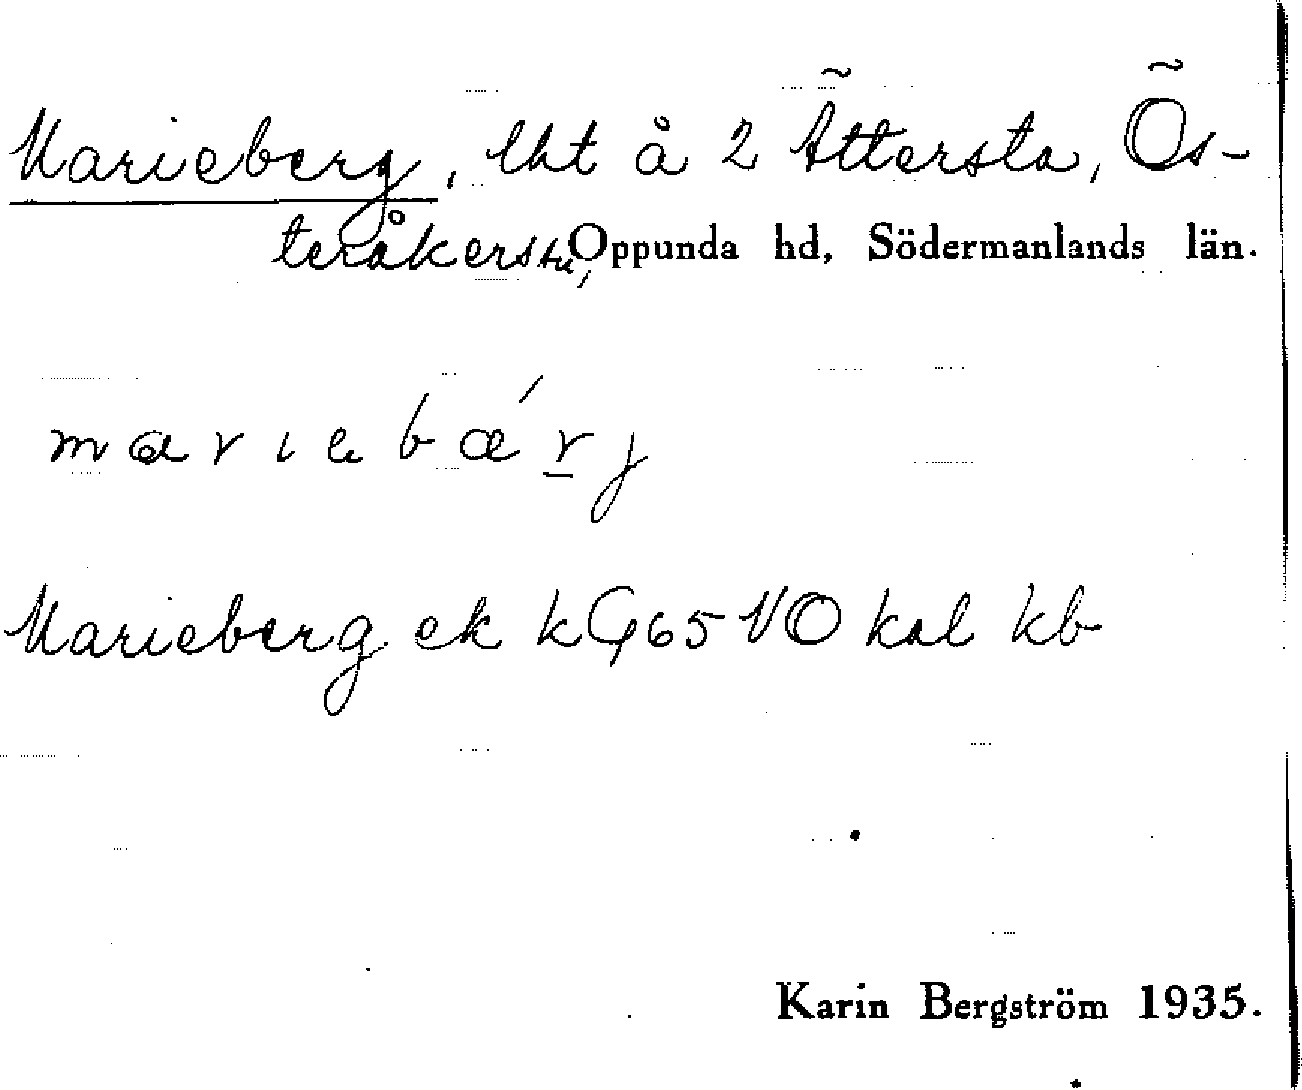 Marieberg, lht å 2 Ättersta, Ös-
teråkers sn, Oppunda hd, Södermanlands län.
marιebǽr̲j
Marieberg ek kG65VO kal kb
Karin Bergström 1935.